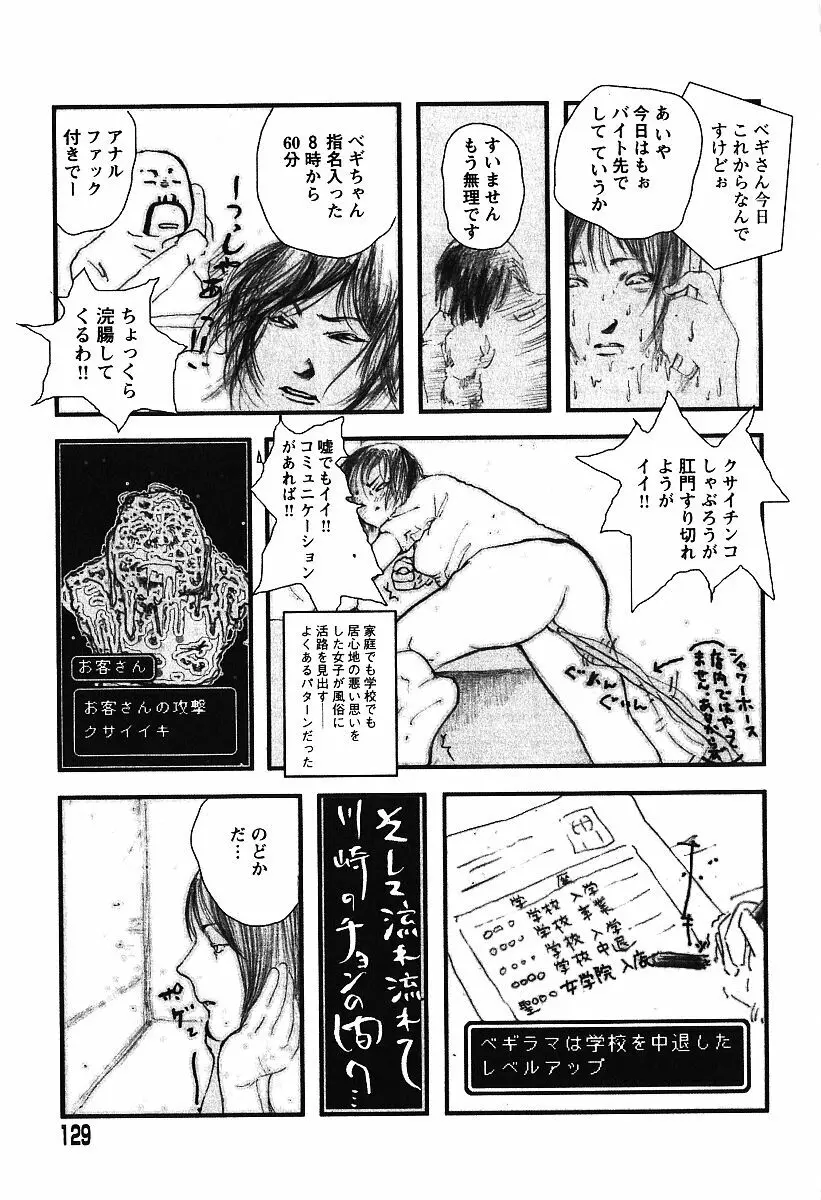 ベギさん今日
これからなんで
すけどぉ
あいや
今日はもぉ
バイト先で
してていうか
すいません
もう無理です
ベギちゃん
指名入った
8時から
60分
アナル
ファック
付きでー
ちょっくら
浣腸して
くるわ!!
クサイチンコ
しゃぶろうが
肛門すり切れ
ようが
イイ!!
嘘でもイイ!!
コミュニケーション
があれば!!
家庭でも学校でも
居心地の悪い思いを
した女子が風俗に
活路を見出す――
よくあるパターンだった
シャワーホース
ぐぉん
ぐぃん
お客さん
お客さんの攻撃
クサイイキ
学 歴
○○○学校 入学
○○○学校 卒業
○○○学校 入学
○○○学校 中退
聖○○○女学院 入店
ベギラマは学校を中退した
レベルアップ
そして流れ流れて
川崎のチョンの間へ…
のどか
だ…
129